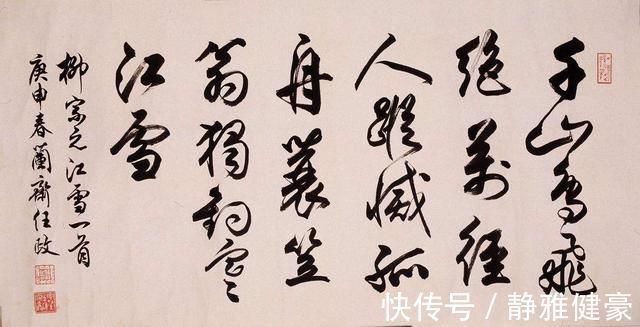 千山鳥飛
絕萬徑
人蹤滅孤
舟蓑笠
翁獨釣寒
江雪
柳宗元江雪一首
庚申春蘭齋任政
快传号/静雅健豪